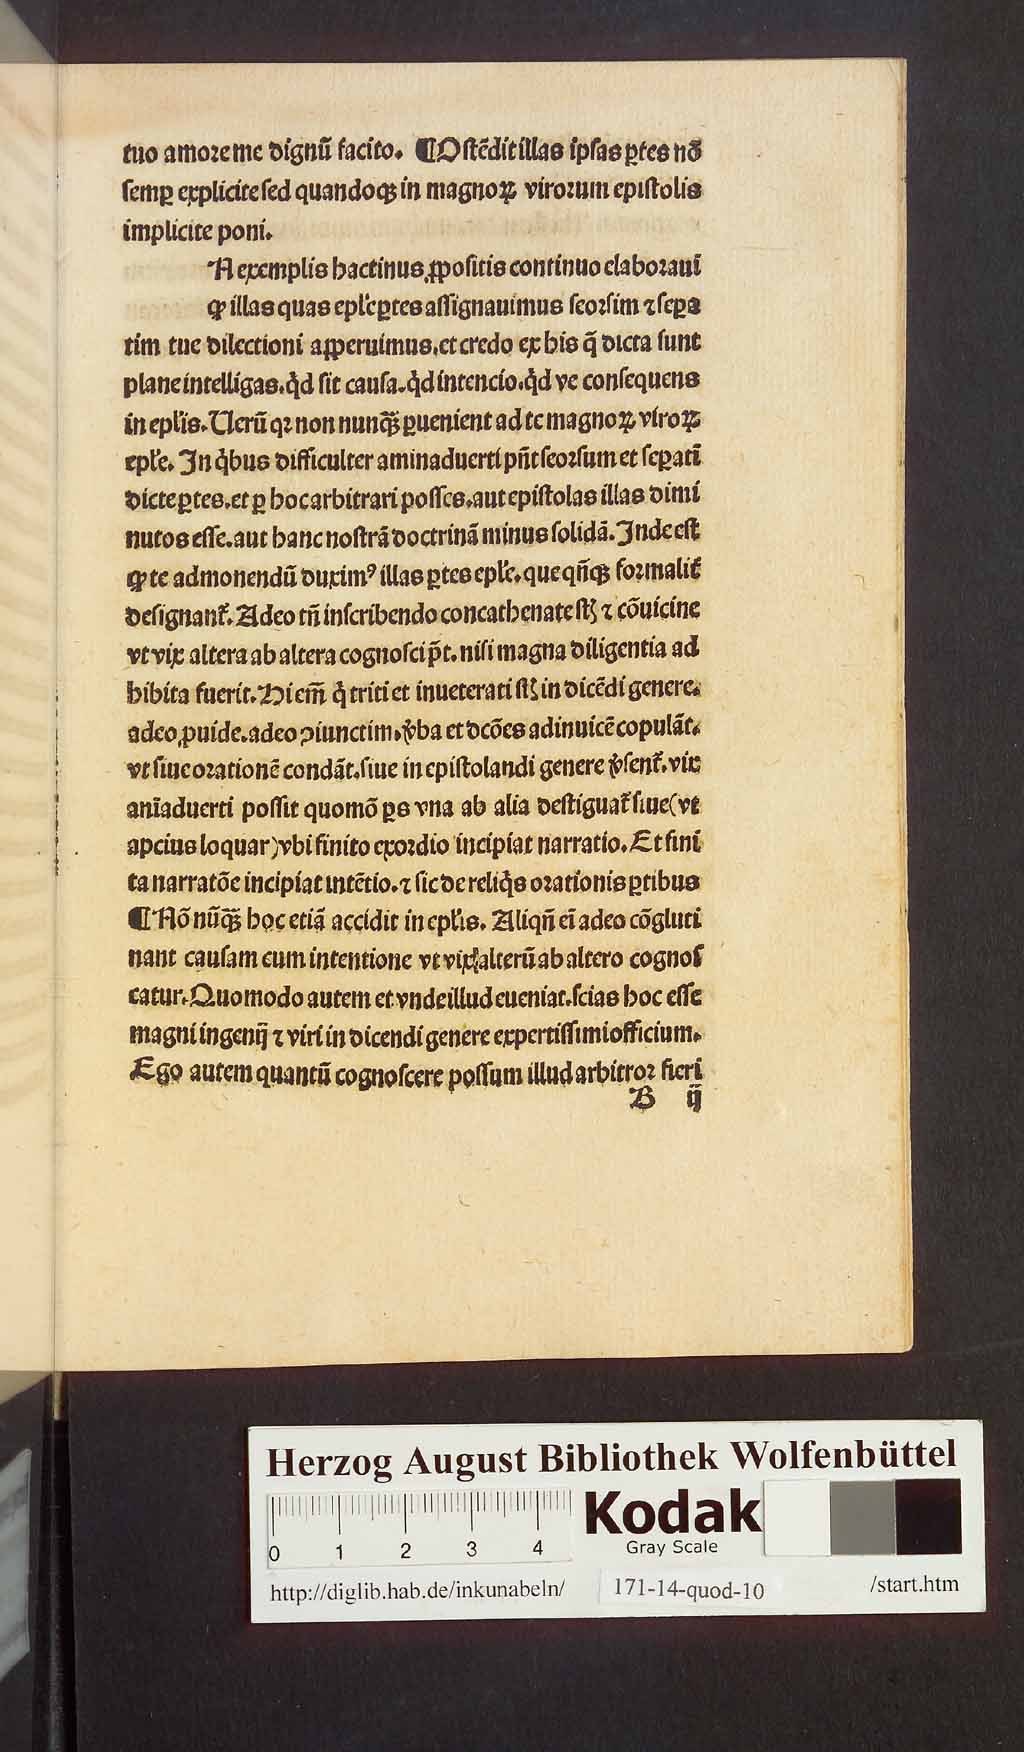 tuo amore me dignū facito. ¶ Ostēdit illas ipsas ꝑtes nō
semꝑ explicite sed quandoqꝫ in magnoꝝ virorum epistolis
implicite poni.
N exemplis hactinus ꝓpositis continuo elaboraui
ꝙ illas quas epl'e ꝑtes assignauimus seorsim ⁊ sepa
tim tue dilectioni apperuimus. et credo ex his q̄ dicta sunt
plane intelligas. qͥd sit causa. qͥd intencio. qͥd ve consequens
in epl'is. Uerū qꝛ non nunqꝫ ꝑuenient ad te magnoꝝ viroꝝ
epl'e. In qͥbus difficulter aminaduerti pn̄t seorsum et seꝑatī
dicte ꝑtes. et ꝑ hoc arbitrari posses. aut epistolas illas dimi
nutos esse. aut hanc nostrā doctrinā minus solidā. Inde est
ꝙ te admonendū duximꝰ illas ꝑtes epl'e. que qn̄qꝫ formalit̄
designant̄. Adeo tn̄ in scribendo concathenate st̄ ⁊ cōuicine
vt vix altera ab altera cognosci p̄t. nisi magna diligentia ad
hibita fuerit. Hi em̄ qͥ triti et inueterati st̄ in dicēdi genere.
adeo ꝓuide. adeo ꝯiunctim. v̓ba et dcōes adinuicē copulāt.
vt siue orationē condāt. siue in epistolandi genere v̓sent̄. vix
anīaduerti possit quomō ꝑs vna ab alia destiguat̄ siue (vt
apcius loquar) vbi finito exordio incipiat narratio. Et fini
ta narratōe incipiat intētio. ⁊ sic de reliqͥs orationis ꝑtibus
¶ Nō nūqꝫ hoc etiā accidit in epl'is. Aliqn̄ eī adeo cōgluti
nant causam cum intentione vt vix alterū ab altero cognos
catur. Quomodo autem et vnde illud eueniat. scias hoc esse
magni ingenij ⁊ viri in dicendi genere expertissimi officium.
Ego autem quantū cognoscere possum illud arbitror fieri
B ij
Herzog August Bibliothek Wolfenbüttel
0 1 2 3 4
Kodak
Gray Scale
http://diglib.hab.de/inkunabeln/ 171-14-quod-10 /start.htm